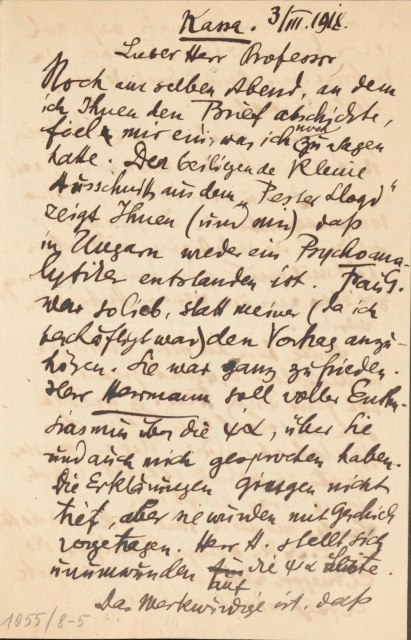 Kassa. 3/III. 1918.
Lieber Herr Professor,
Noch am selben Abend, an dem
ich Ihnen den Brief abschickte,
fiel mir ein, was ich noch zu sagen
hatte. Der beiligende kleine
Ausschnitt aus dem „Pester Lloyd"
zeigt Ihnen (und mir) daß
in Ungarn wieder ein Psychoana-
lytiker entstanden ist. Frau G.
war so lieb, statt meiner (da ich
beschäftigt war) den Vortrag anzu-
hören. Sie war ganz zufrieden.
Herr Herrmann soll voller Enthu-
siasmus über die ψα, über Sie
und auch mich gesprochen haben.
Die Erklärungen giengen nicht
tief, aber sie wurden mit Geschick
vorgetragen. Herr H. stellt sich
unumwunden auf die ψα
Das Merkwürdige ist, daß
1055/8-5